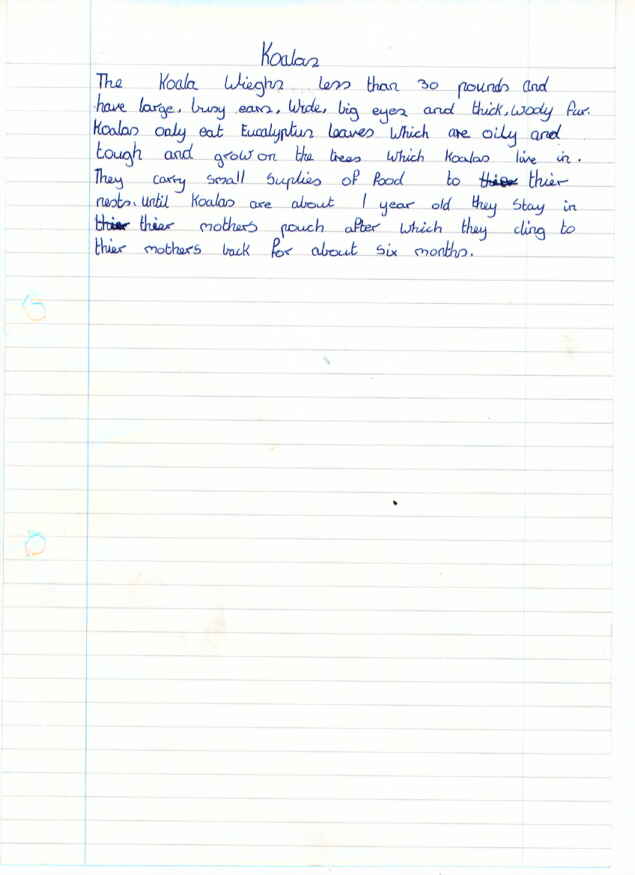 Koalas
The Koala Wieghs less than 30 pounds and
have large, busy ears, Wide, big eyes and thick, wooly fur.
Koalas only eat Eucalyptus leaves which are oily and
tough and grow on the trees which Koalas live in.
They carry small suplies of food to thier thier
nests. until Koalas are about 1 year old they stay in
thier thier mothers pouch after which they cling to
thier mothers back for about six months.